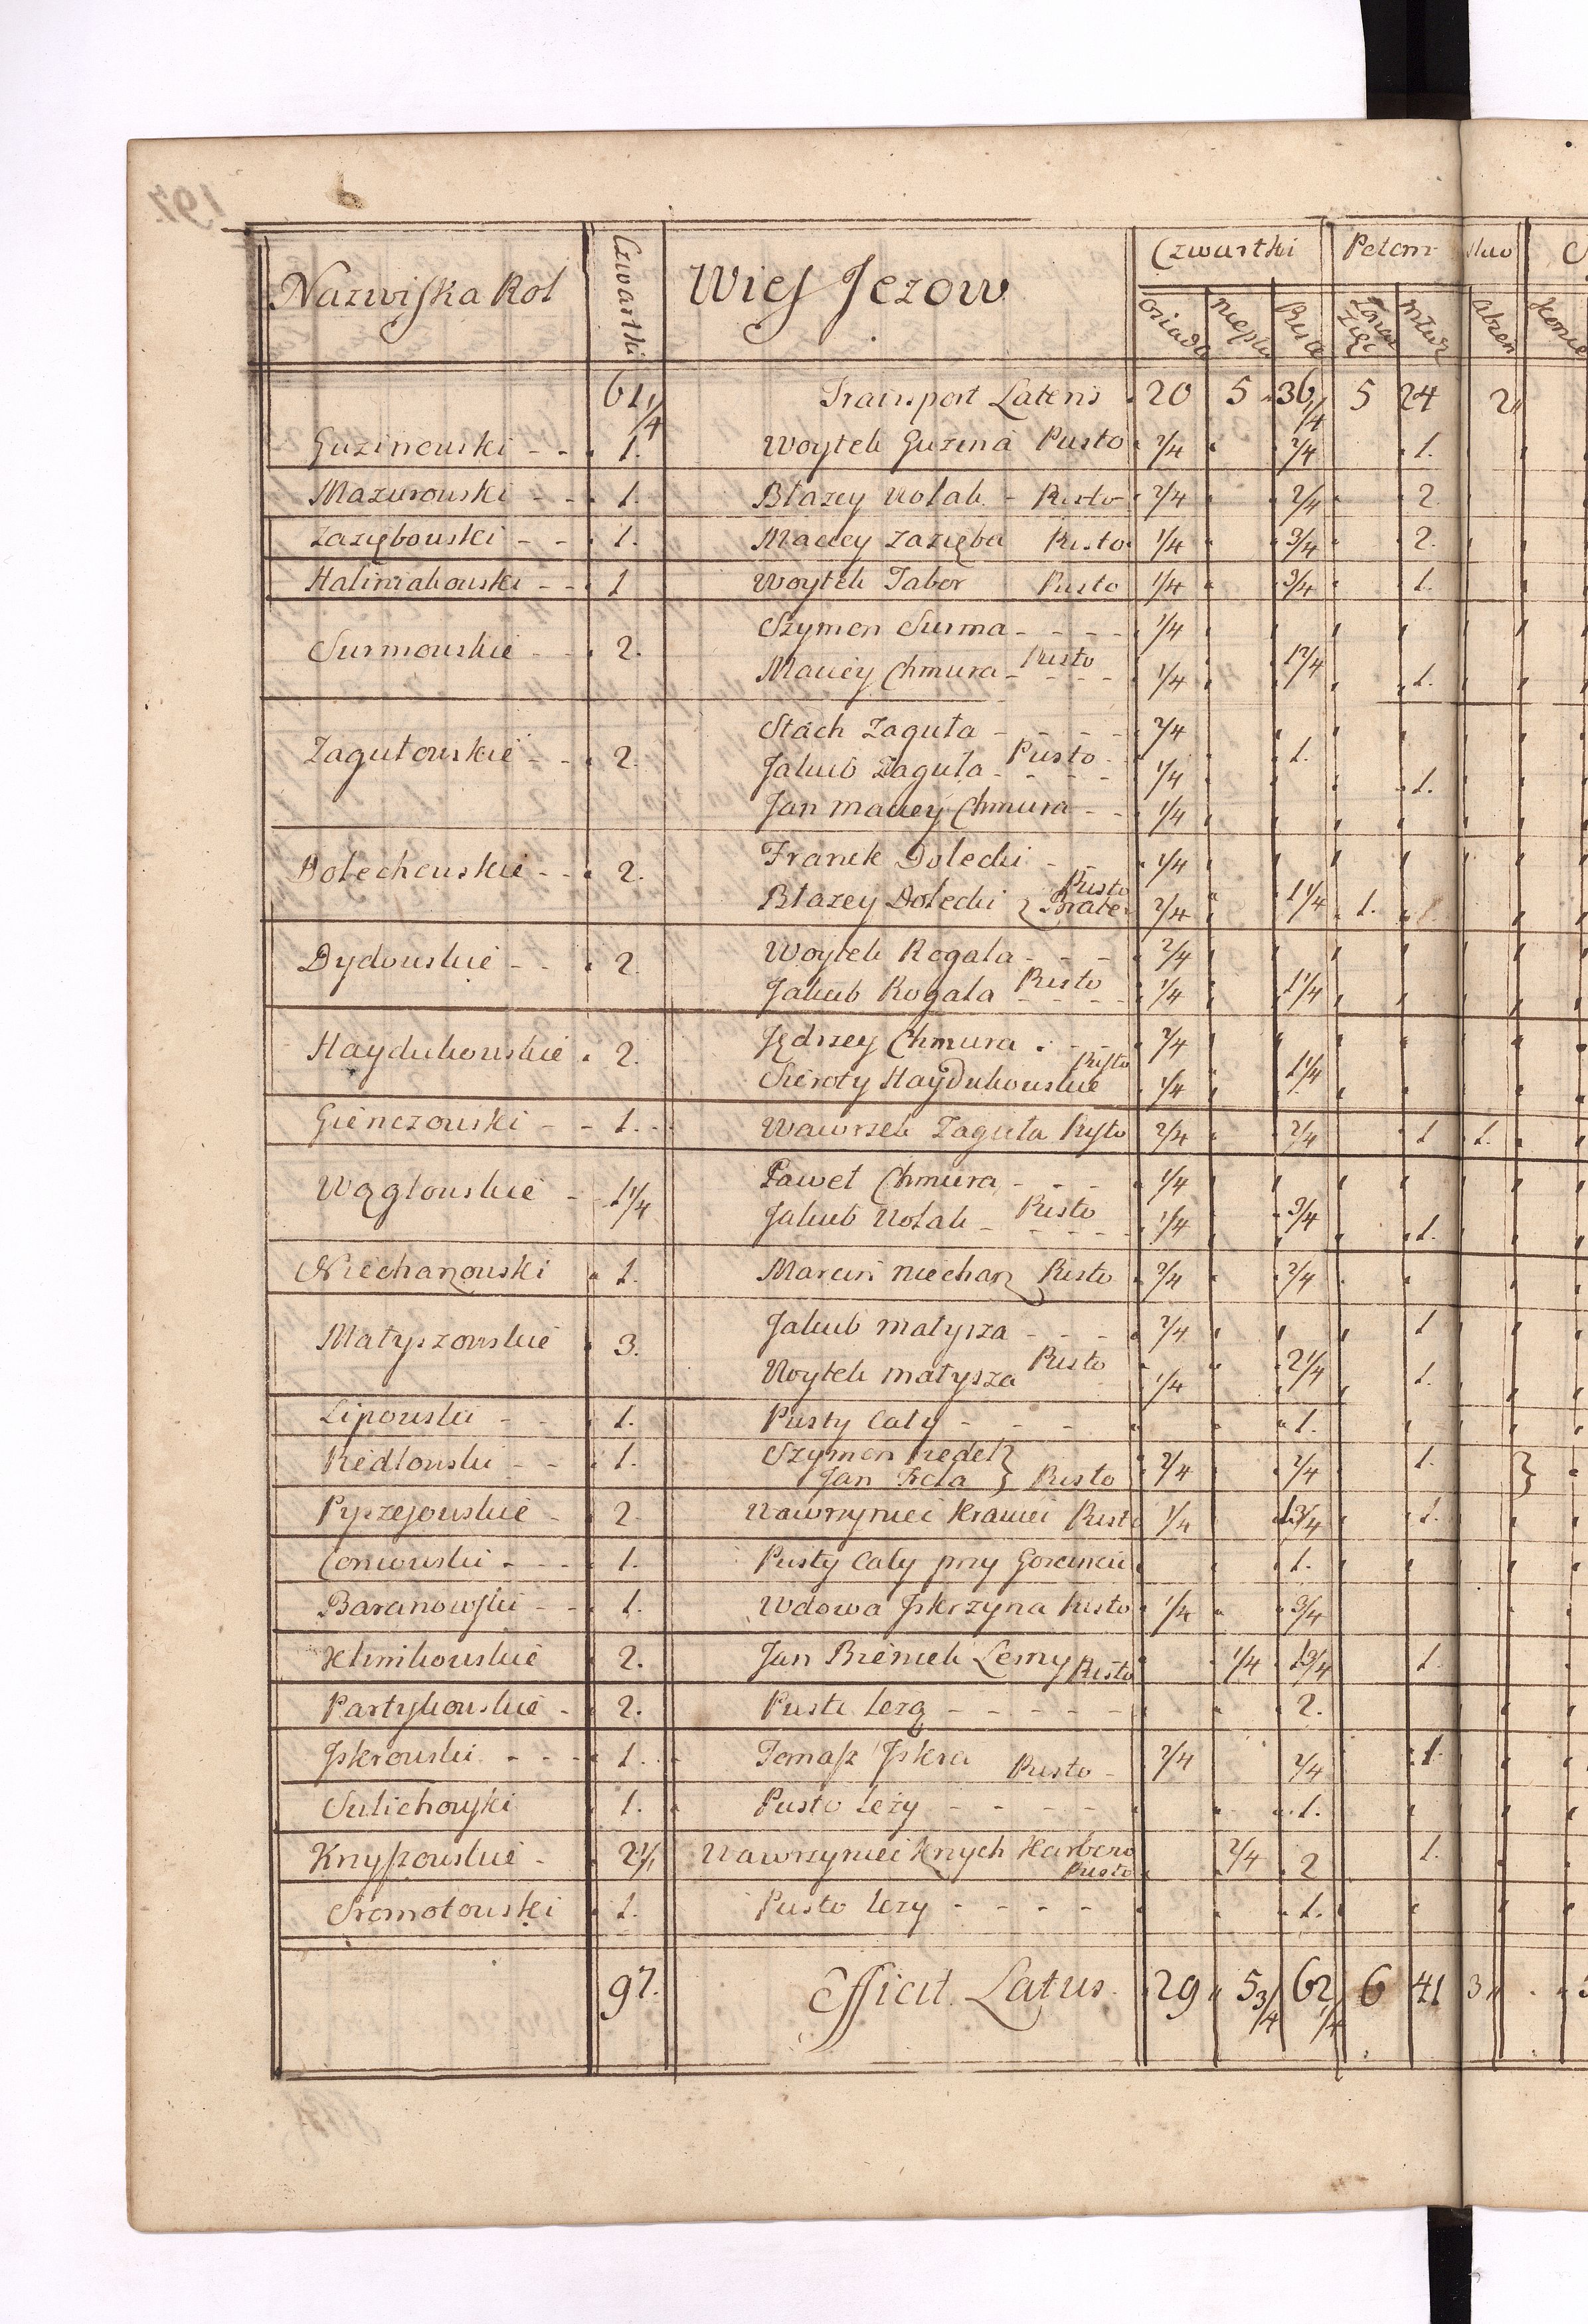 197.
Nazwiska Rol Czwartki Wieś Jezow Czwartki Potom stwo
osiadł niepła Puste Zona Zięć młodz
61 1/4 Transport Lateris 20 5 36 1/4 5 24 2
Guzinowski 1. Woytek Guzina Pusto 2/4 2/4 1.
Mazurowski 1. Błazey Wołak Pusto 2/4 2/4 2
Zaziębowski 1. Maciey Zazięba Pusto 1/4 3/4 2.
Haliniakowski 1 Woytek Tabor Pusto 1/4 3/4 1.
Surmowskie 2. Szymon Surma 1/4
Maciey Chmura Pusto 1/4 1 2/4 1.
Zagułowskie 2. Stach Zaguła 2/4
Jakub Zaguła Pusto 1/4 1. 1.
Jan maciey Chmura 1/4
Dołechowskie 2. Franek Dołecki 1/4
Błazey Dołecki Pusto Brater 2/4 1 1/4 1.
Dydowskie 2. Woytek Rogala 2/4
Jakub Rogala Pusto 1/4 1 1/4
Haydukowskie 2. Jędrzey Chmura 2/4
Sieroty Haydukowskie Pusto 1/4 1 1/4
Gienczowski 1. Wawrzek Zaguła Pusto 2/4 2/4 1 1.
Wągłowskie 1 1/4 Paweł Chmura 1/4
Jakub Wołak Pusto 1/4 3/4 1.
Niechanowski 1. Marcin niechay Pusto 2/4 2/4
Matyszowskie 3. Jakub matysza 2/4 1
Woytek matysza Pusto 1/4 2 1/4 1.
Lipowski 1. Pusty Cały 1.
Redłowski 1. Szymon redel
Jan Frola Pusto 2/4 2/4 1.
Pyszejowskie 2. Wawrzyniec Krawiec Pusto 1/4 1 3/4 1.
1. Pusty Cały przy Goscincu 1.
Baranowski 1. Wdowa Jskrzyna Pusto 1/4 3/4
Klimkowskie 2. Jan Bieniek Lesny Pusto 1/4 1 3/4 1
Partykowskie 2. Puste lezą 2.
Jskrowski 1. Tomasz Jskra Pusto 2/4 2/4 1
Sulichowski 1. Pusto lezy 1.
Knyszowskie 2 Wawrzyniec Knych Karbow Pusto 2/4 2 1.
Sromotowski 1. Pusto lezy 1.
97. Efficit Latus 29 5 3/4 62 1/4 6 41 3